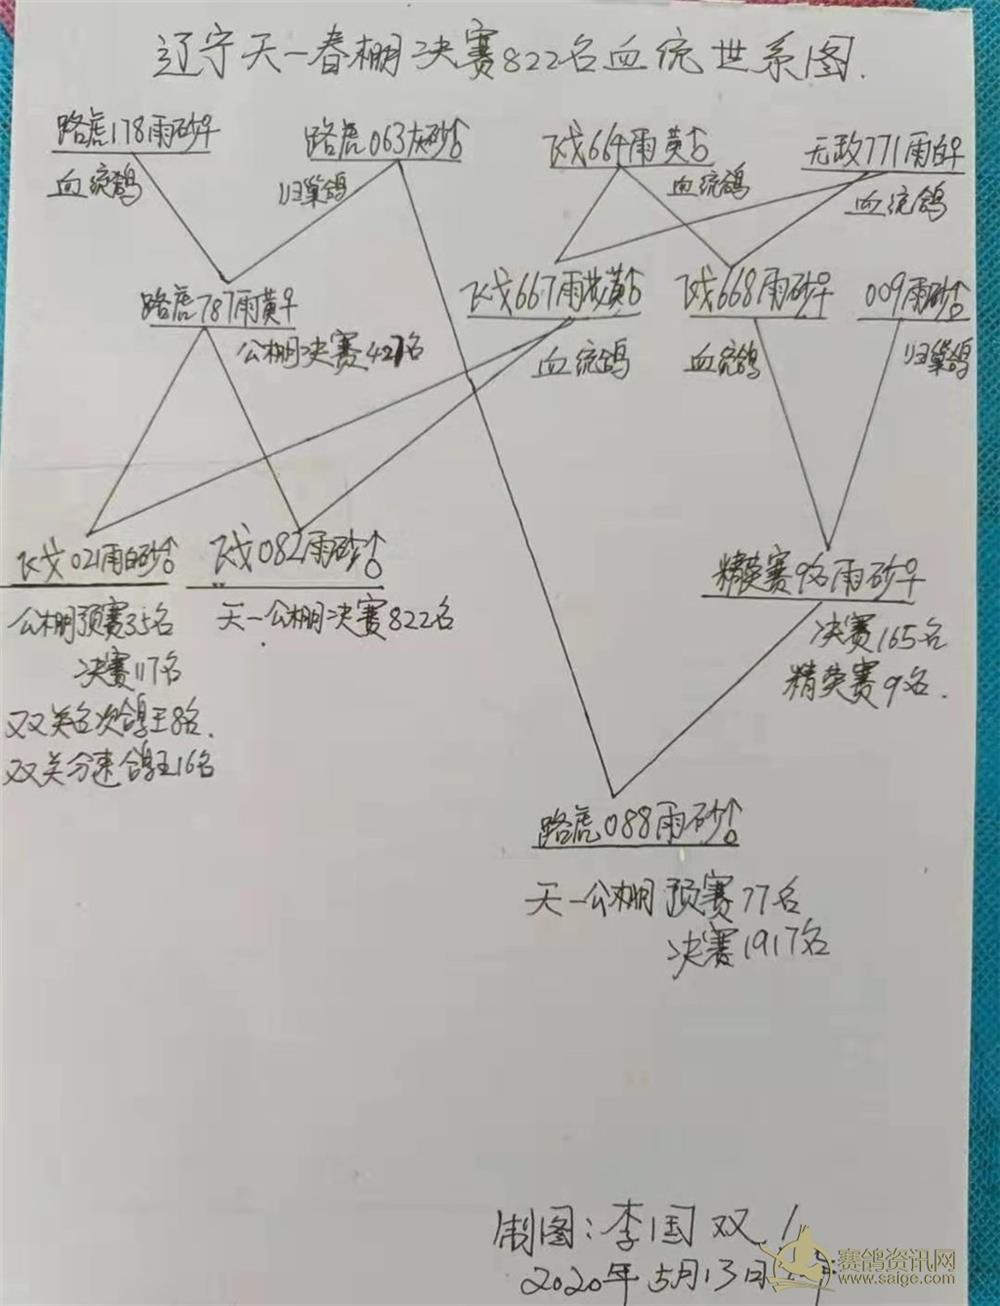 辽宁天一春棚决赛822名血统世系图.
路虎178雨砂♀
路虎063灰砂♂
飞戈664雨黄♂
无政771雨白♀
血统鸽
归巢鸽
血统鸽
血统鸽
路虎787雨黄♀
飞戈667雨花黄♂
飞戈668雨砂♀
009雨砂♂
公棚决赛427名
血统鸽
血统鸽
归巢鸽
飞戈021雨白砂♂
飞戈082雨砂♂
精英赛9名雨砂♀
公棚预赛35名
天一公棚决赛822名
决赛165名
决赛117名
精英赛9名.
双关名次鸽王8名.
双关分速鸽王16名
路虎088雨砂♂
天一公棚预赛77名
决赛1917名
制图:李国双!
2020年5月13日
赛鸽资讯网
www.saige.com